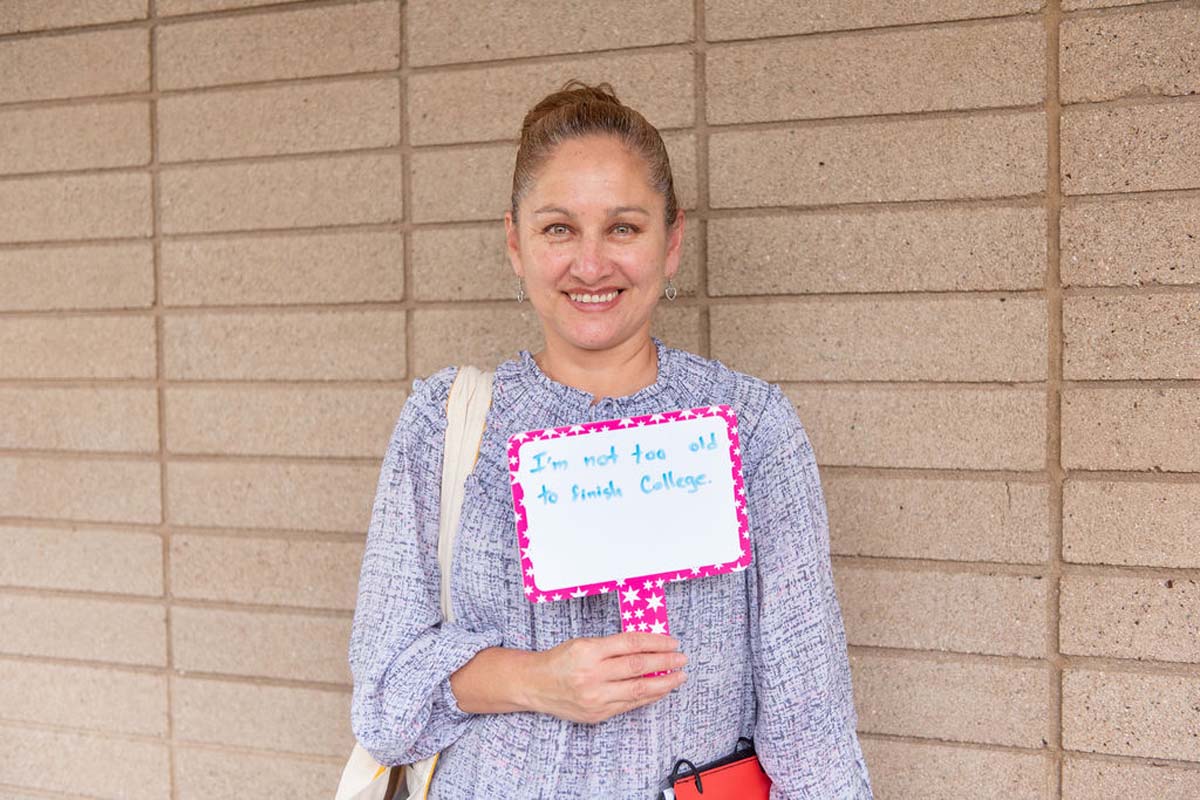 I'm not too old
to finish College.